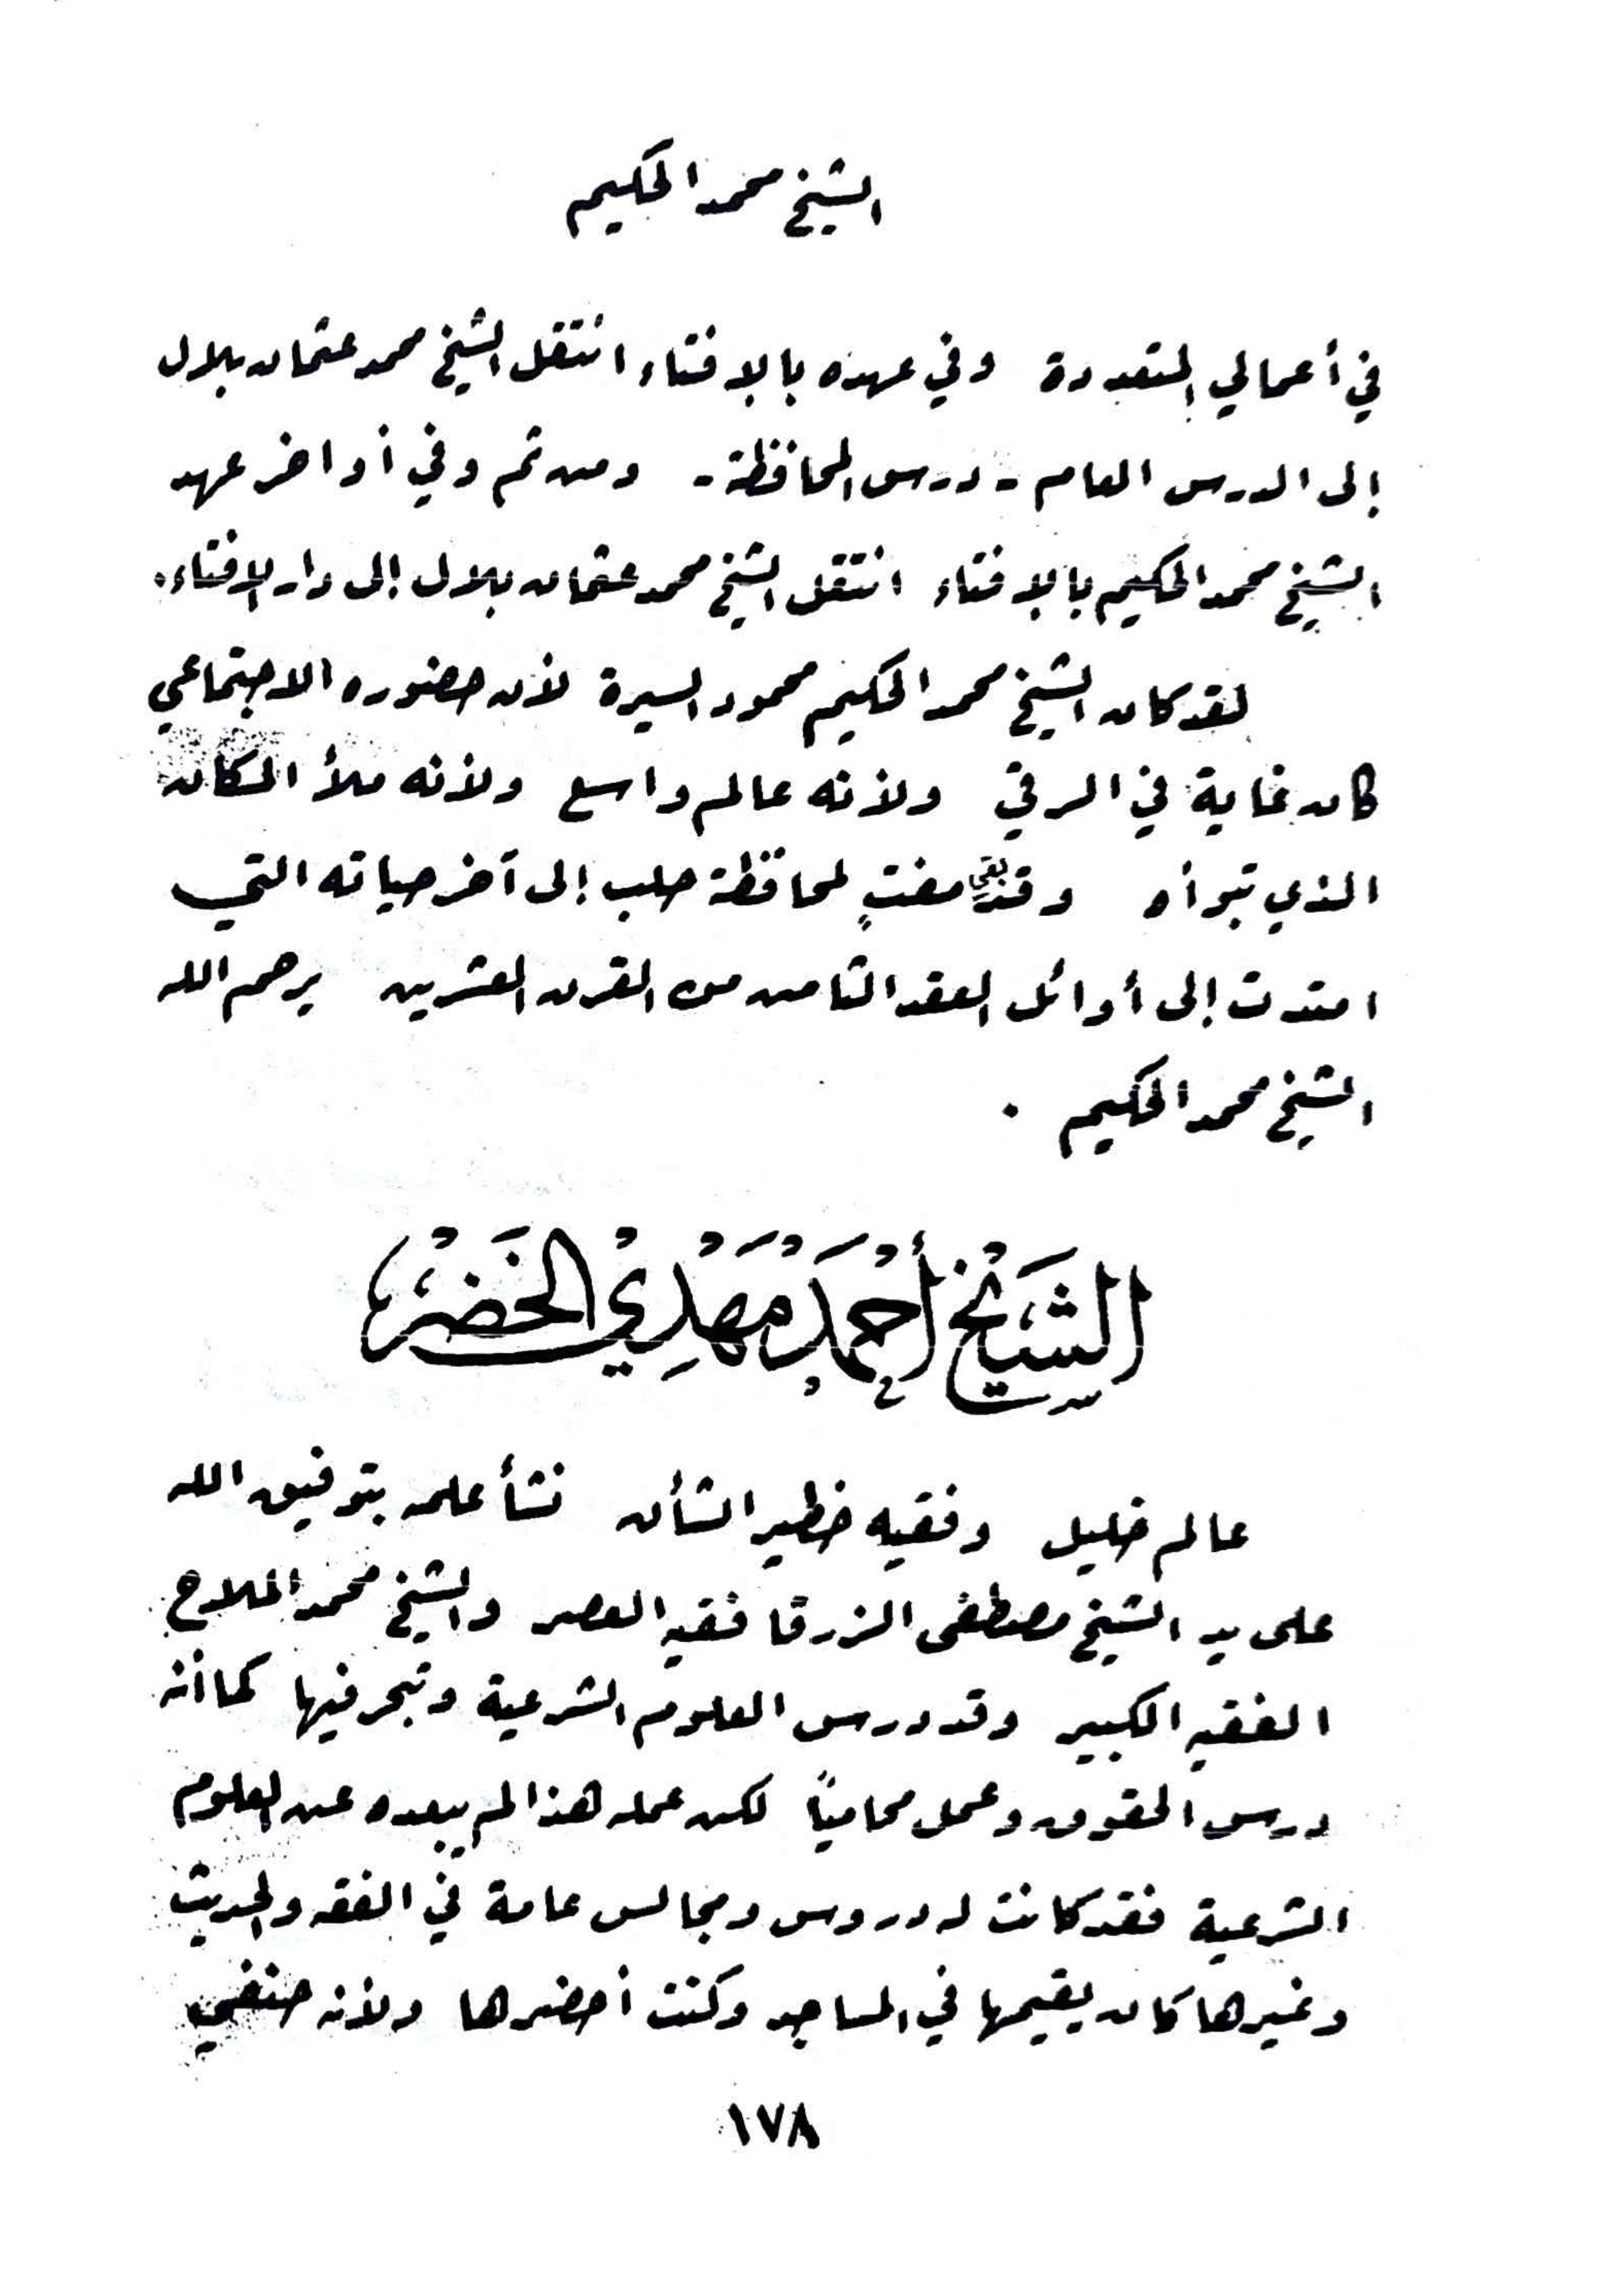 الشيخ محمد الحكيم
في أعمالي المتعددة وفي عهده بالإفتاء انتقل الشيخ محمد عثمان بلال
إلى الدرس العام - درس المحافظة - ومن ثم وفي أواخر عهد
الشيخ محمد الحكيم بالإفتاء انتقل الشيخ محمد عثمان بلال إلى دار الإفتاء.
لقد كان الشيخ محمد الحكيم محمود السيرة لأن حضوره الاجتماعي
كان غاية في الرقي ولأنه عالم واسع ولأنه ملأ المكان
الذي تبوأه وقد بقي مفتٍ لمحافظة حلب إلى آخر حياته التي
امتدت إلى أوائل العقد الثامن من القرن العشرين يرحم الله
الشيخ محمد الحكيم .
الشَيْخ أحْمَدْ مَهْدِيْ الخَضَرْ
عالم خليل وفقيه خطير الشأن نشأ علمه بتوفيق الله
على يد الشيخ مصطفى الزرقا فقيه العصر والشيخ محمد الملاح
الفقيه الكبير وقد درس العلوم الشرعية وتبحر فيها كما أنه
درس الحقوق وعمل محامياً لكن عمله هذا لم يبعده عن العلوم
الشرعية فقد كانت له دروس ومجالس عامة في الفقه والحديث
وغيرها كان يقيمها في المساجد وكنت أحضرها ولأنه حنفي
١٧٨